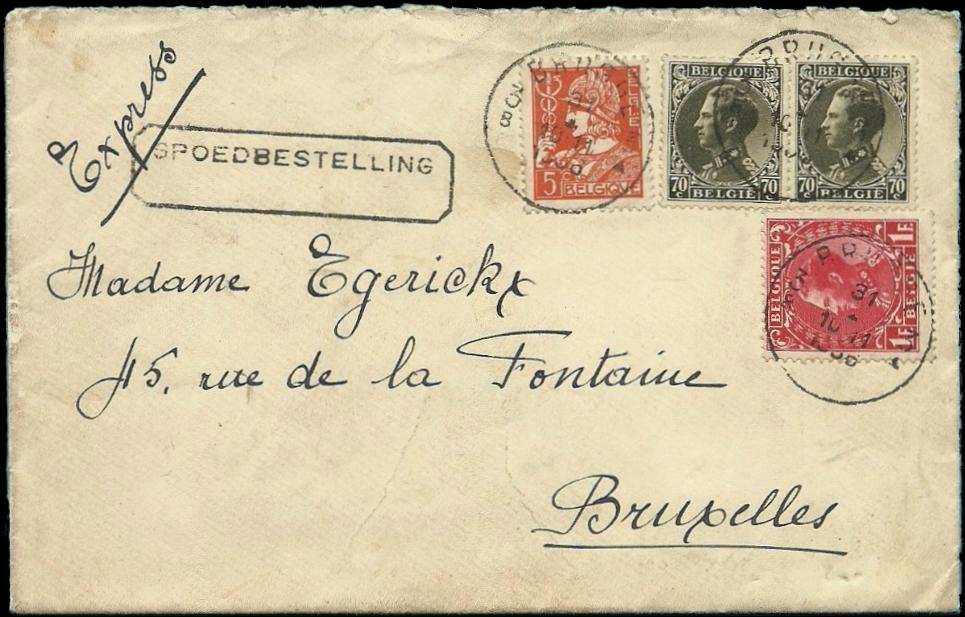 Express
SPOEDBESTELLING
5
BELGIE
BELGIQUE
BELGIQUE
70 70
BELGIË
BELGIQUE
70 70
BELGIË
1F BELGIE 1F
Madame Egerickx
45, rue de la Fontaine
Bruxelles